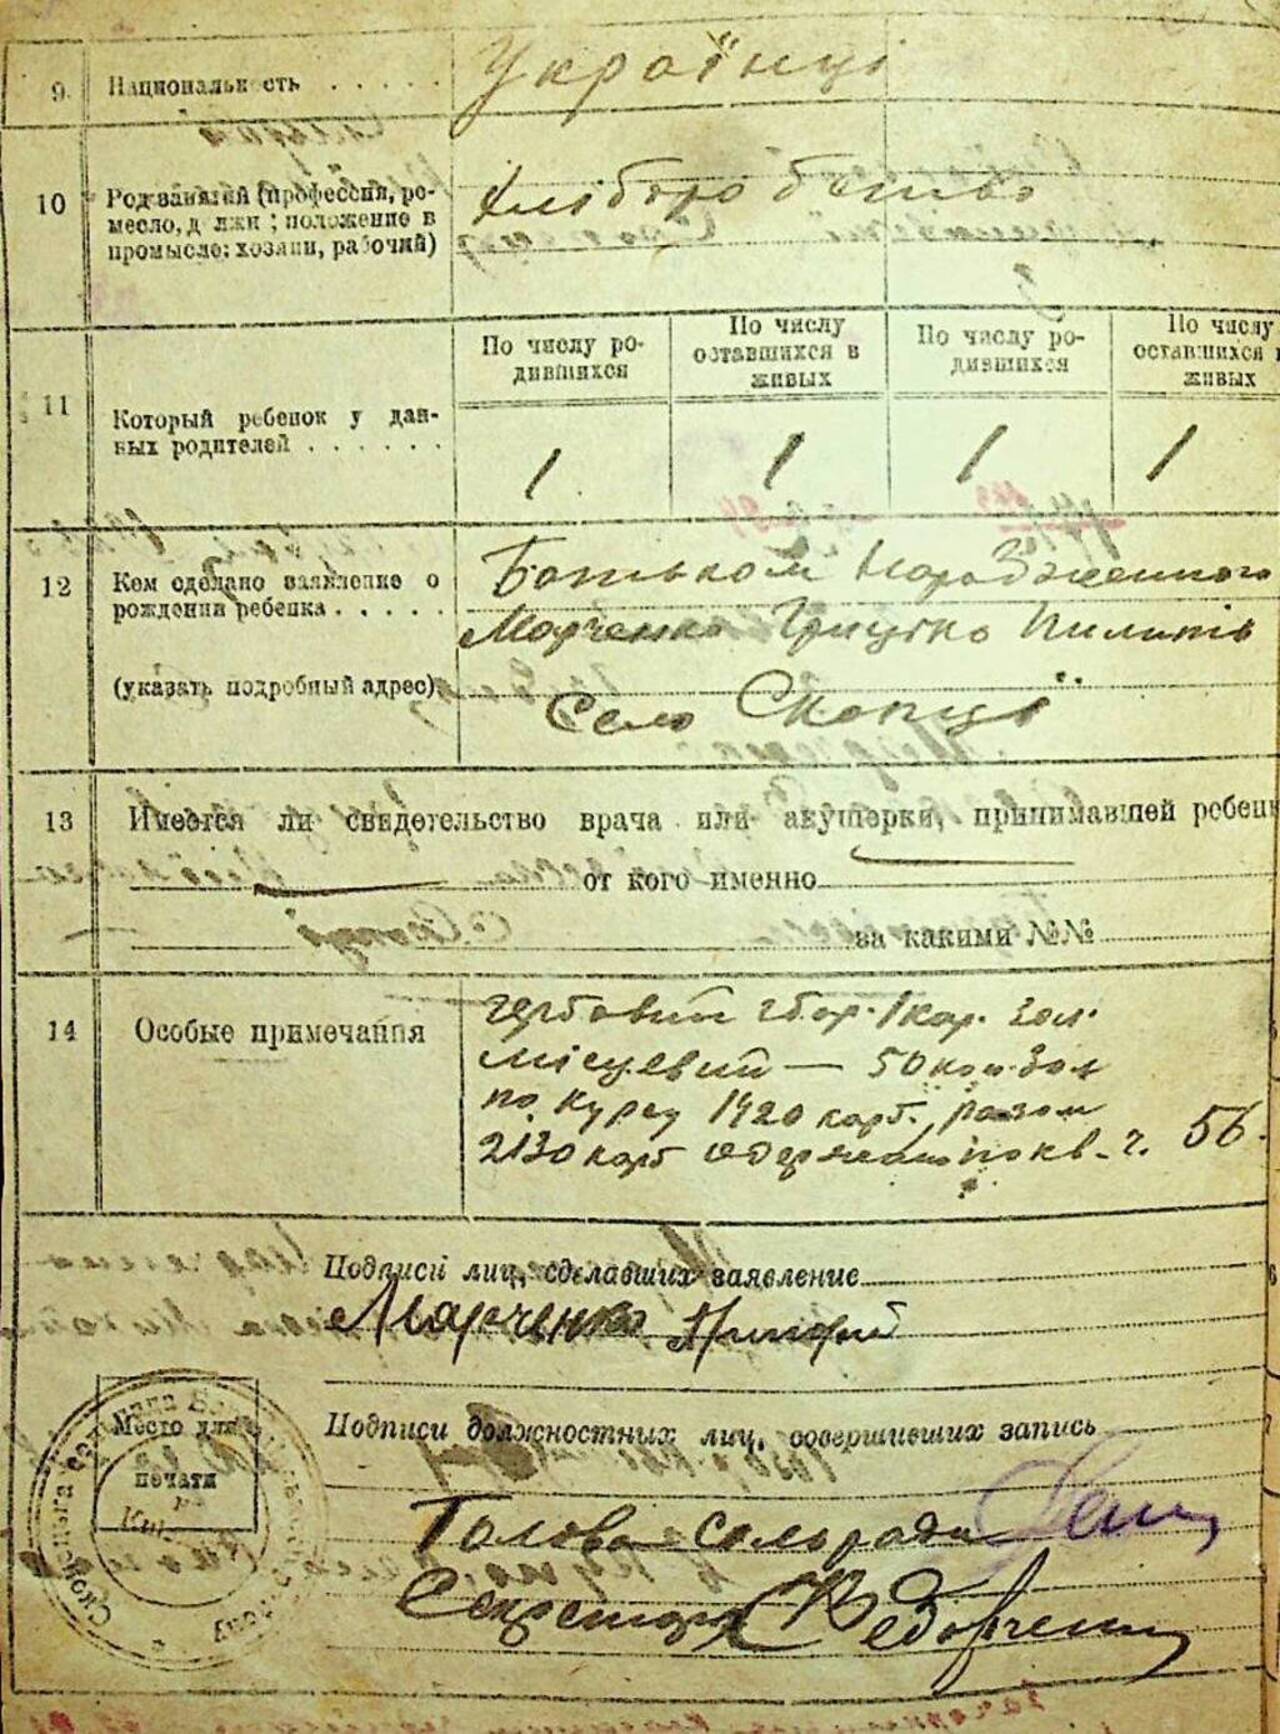 9. Национальность . . . . . Українці
10 Род занятий (профессия, ре-
месло, должн; положение в
промысле: хозяин, рабочий)
Хліборобство
По числу ро-
дившихся
По числу
оставшихся в
живых
По числу ро-
дившихся
По числу
оставшихся в
живых
11 Который ребенок у дан-
ных родителей . . . . . .
1 1 1 1
12 Кем сделано заявление о
рождении ребенка . . . . .
(указать подробный адрес)
Батьком народженного
Марченко Грицько Пилипів
Село Скопці
13 Имеется ли свидетельство врача или акушерки, принимавшей ребен
от кого именно
за какими №№
14 Особые примечания
гербовий збор. 1 кар. зол.
місцевий — 50 коп. зол
по курсу 1420 карб. разом
2130 карб одержано по кв. ч. 56.
Подписи лиц, сделавших заявление
Марченко
Место для
печати
Подписи должностных лиц, совершивших запись
Голова сельради
Секретарь